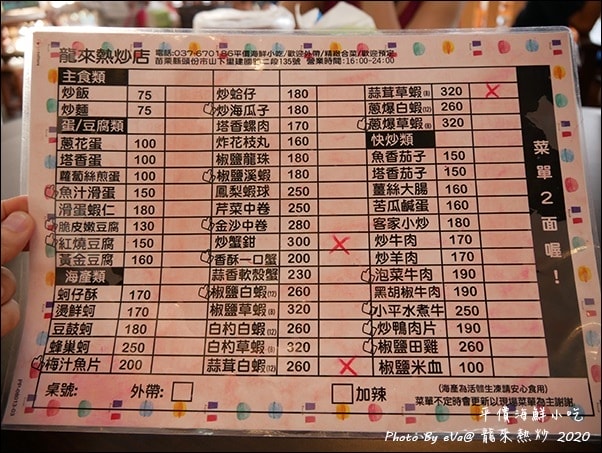 龍來熱炒店 電話:037-670186平價海鮮小吃/歡迎外帶/精緻合菜/歡迎預定
苗栗縣頭份市山下里建國路二段135號 營業時間:16:00-24:00
主食類
炒飯 75
炒麵 75
蛋/豆腐類
蔥花蛋 100
塔香蛋 100
蘿蔔絲煎蛋 100
魚汁滑蛋 150
滑蛋蝦仁 180
脆皮嫩豆腐 130
紅燒豆腐 150
黃金豆腐 160
海產類
蚵仔酥 170
燙鮮蚵 170
豆鼓蚵 180
蜂巢蚵 250
梅汁魚片 200
炒蛤仔 180
炒海瓜子 180
塔香螺肉 170
炸花枝丸 160
椒鹽龍珠 180
椒鹽溪蝦 180
鳳梨蝦球 250
芹菜中卷 250
金沙中卷 280
炒蟹鉗 300
香酥一口蟹 200
蒜香軟殼蟹 230
椒鹽白蝦(12) 260
椒鹽草蝦(8) 320
白杓白蝦(12) 260
白杓草蝦(8) 320
蒜茸白蝦(12) 260
蒜茸草蝦(8) 320
蔥爆白蝦(12) 260
蔥爆草蝦(8) 320
快炒類
魚香茄子 150
塔香茄子 150
薑絲大腸 160
苦瓜鹹蛋 160
客家小炒 180
炒牛肉 170
炒羊肉 170
泡菜牛肉 190
黑胡椒牛肉 190
小平水煮牛 250
炒鴨肉片 190
椒鹽田雞 260
椒鹽米血 100
菜單2面喔!
桌號: 外帶: 加辣
(海產為活體生凍請安心食用)
菜單不定時會更新以現場菜單為主謝謝
平價海鮮小吃
Photo By eVa@ 龍來熱炒 2020